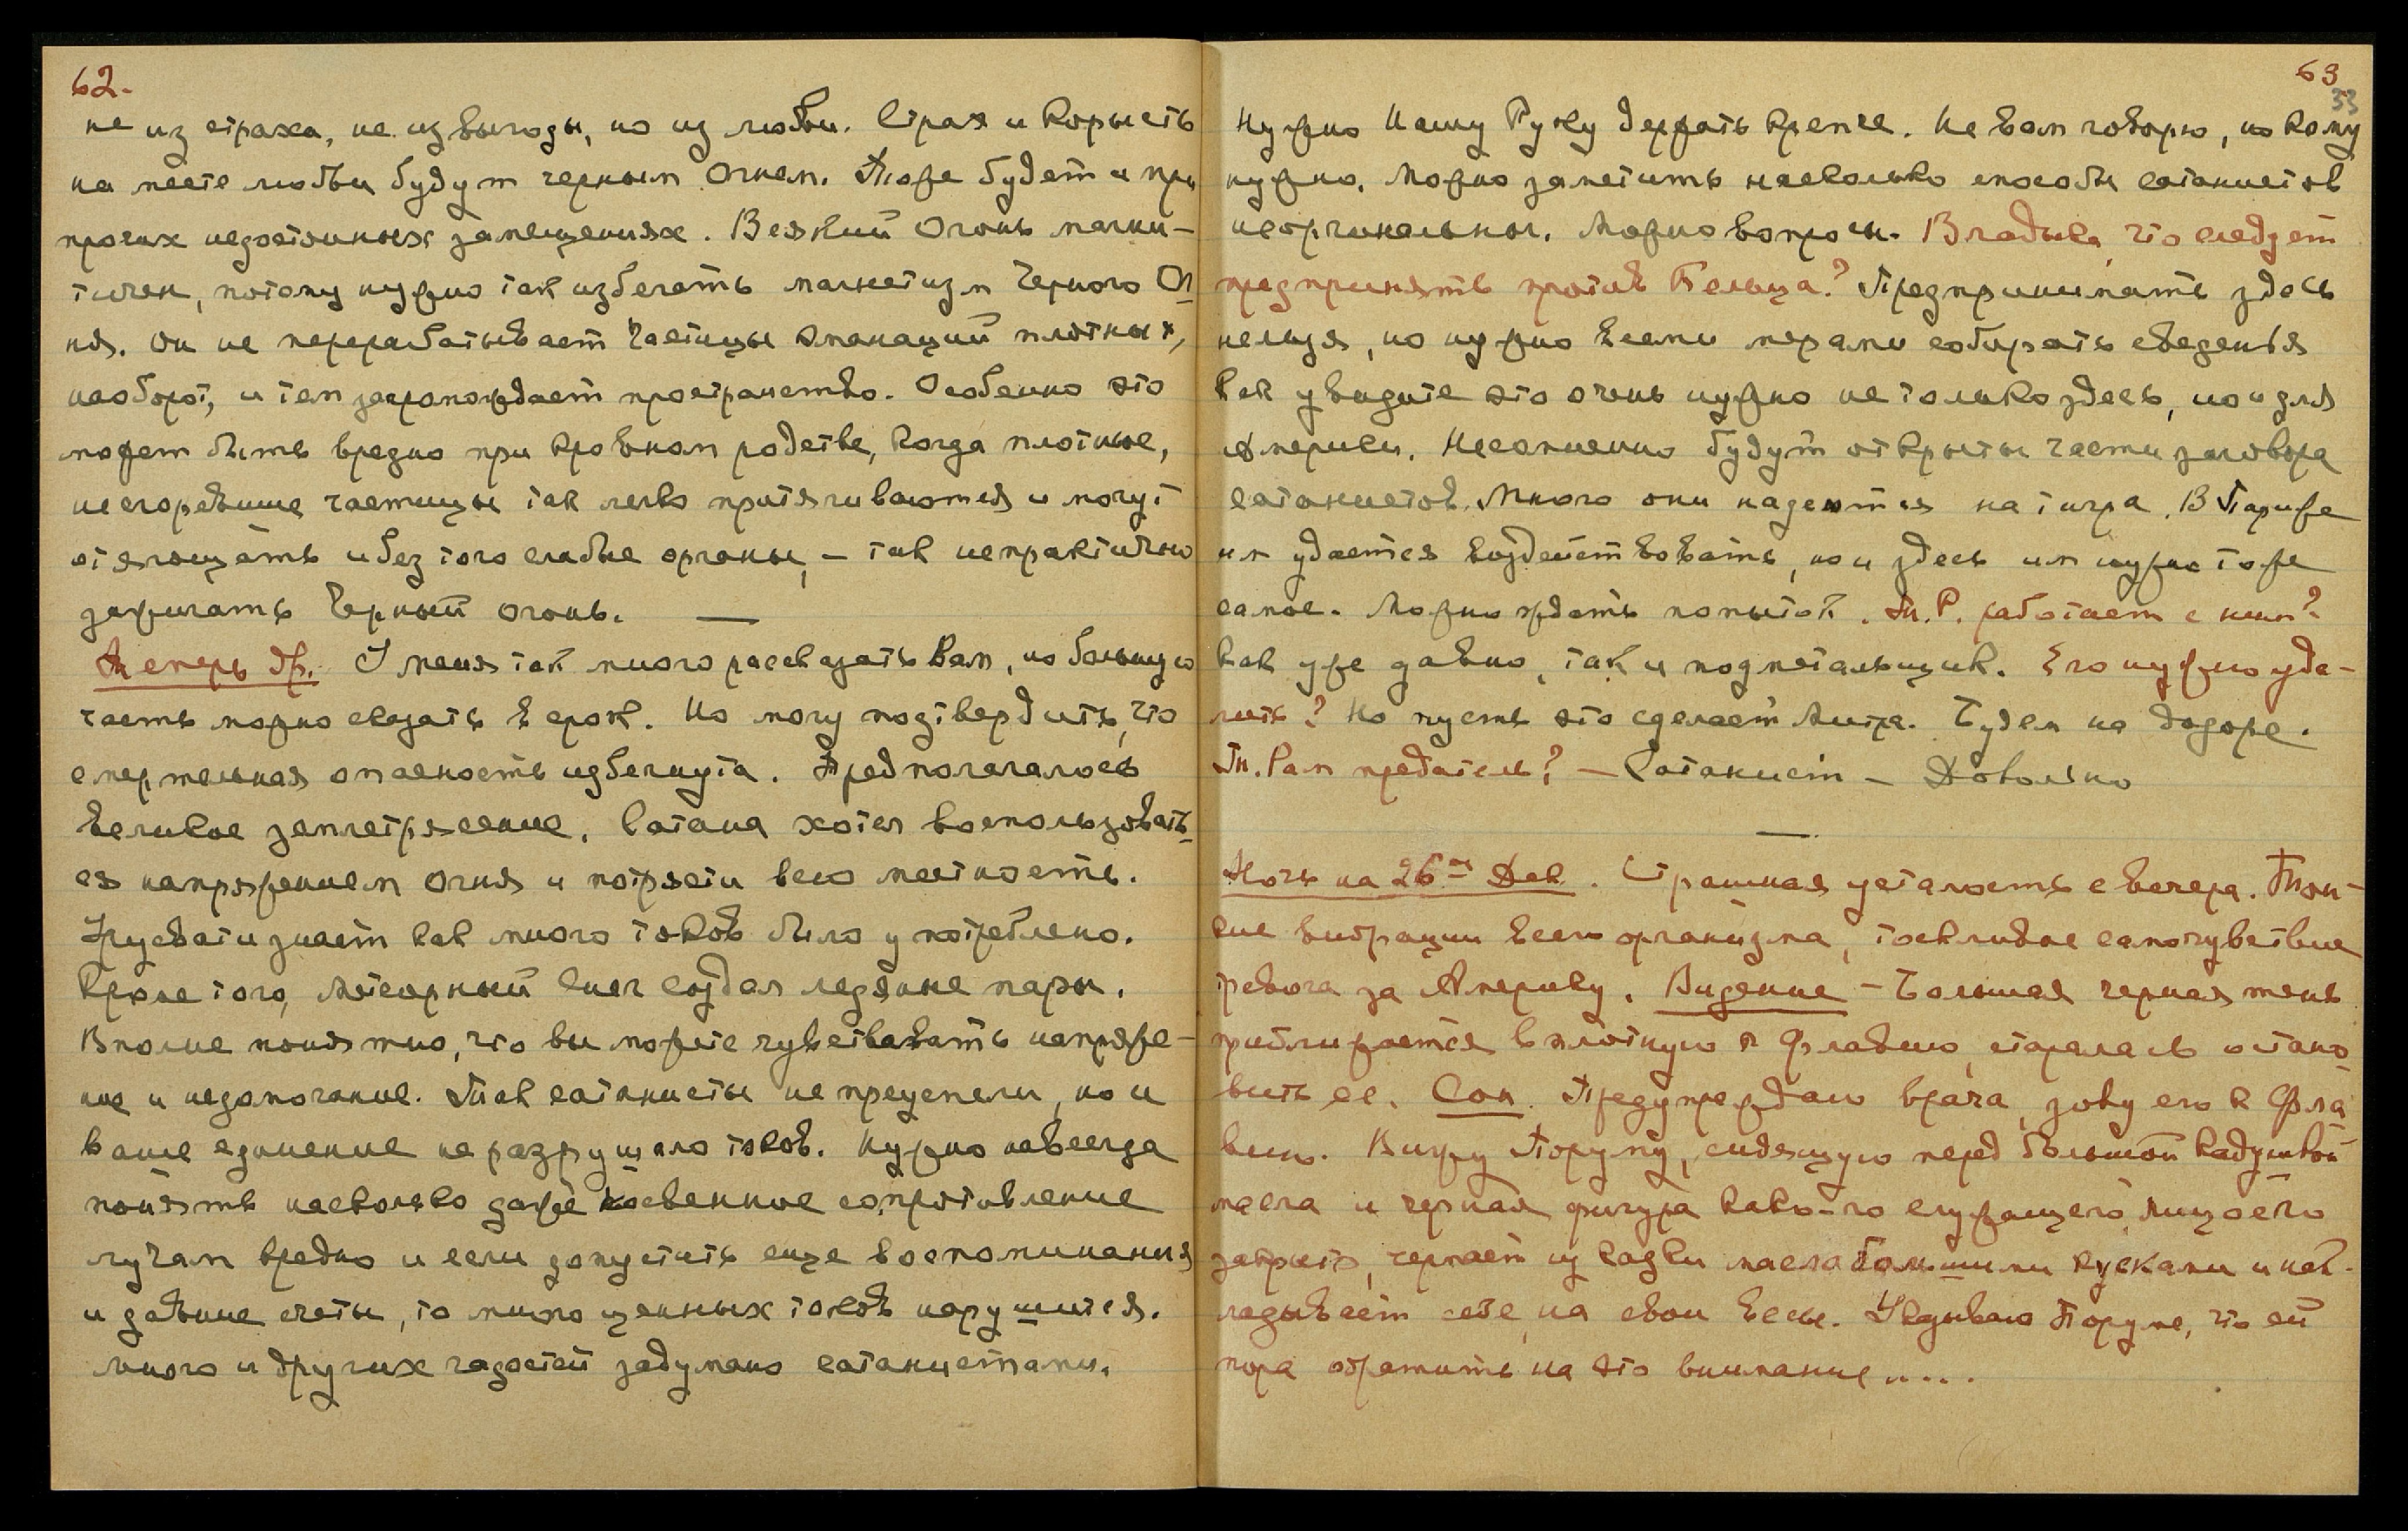 62.
не из страха, не из выгоды, но из любви. Страх и Корысть
на месте любви будут черным Огнем. Тоже будет и при
прочих недостойных замещениях. Всякий Огонь магни-
тичен, потому нужно так избегать магнетизм Черного Ог
ня. Он не перерабатывает Частицы Эманаций плотных,
наоборот, и тем загромождает пространство. Особенно это
может быть вредно при Кровном родстве, Когда плотные,
несгоревшие частицы так легко притягиваются и могут
отягощать и без того слабые органы, – так непрактично
зажигать Черный огонь. —
Теперь др. У меня так много рассказать Вам, но большую
часть можно сказать в срок. Но могу подтвердить, что
смертельная опасность избегнута. Предполагалось
великое землетрясение. Сатана хотел воспользовать
ся напряжением Огня и потрясти всю местность.
Урусвати знает как много токов было употреблено.
Кроме того, Метеорный Снег создал ледяные пары.
Вполне понятно, что вы можете чувствовать напряже-
ние и недомогание. Так сатанисты не преуспели, но и
ваше единение не разрушило токов. Нужно навсегда
понять насколько даже косвенное сопротивление
лучам вредно и если допустить еще воспоминания
и давние счеты, то много ценных токов нарушится.
Много и других гадостей задумано сатанистами.
63
33
Нужно Нашу Руку держать Крепче. Не вам говорю, но Кому
нужно. Можно заметить насколько способы сатанистов
неоргинальны. Можно вопросы. Владыка, что следует
предпринять против Бельца? Предпринимать здесь
нельзя, но нужно всеми мерами собирать сведенья
Как увидите это очень нужно не только здесь, но и для
Америки. Несомненно будут открыты части заговора
сатанистов. Много они надеются на тигра. В Париже
им удается воздействовать, но и здесь им нужно тоже
самое. Можно ждать попыток. Т. Р. работает с ним?
Как уже давно, так и подметальщик. Его нужно уда-
лить? Но пусть это сделает Яитра. Будем на дозоре.
Т. Рам предатель? – Сатанист – Довольно
—
Ночь на 26ое Дек. Страшная усталость с вечера. Тон-
кие вибрации всего организма, тоскливое самочувствие
тревога за Америку. Видение – Большая черная тень
приближается вплотную к Флавию, старалась остано
вить ее. Сон. Предупреждаю врача, зову его к Фла
вию. Вижу Поруму, сидящую перед большой Кадушкой
масла и черная фигура како-го служащего, лицо его
закрыто, черпает из Кадки масло большими кусками и нак-
ладывает себе, на свои весы. Указываю Поруме, что ей
пора обратить на это внимание ....